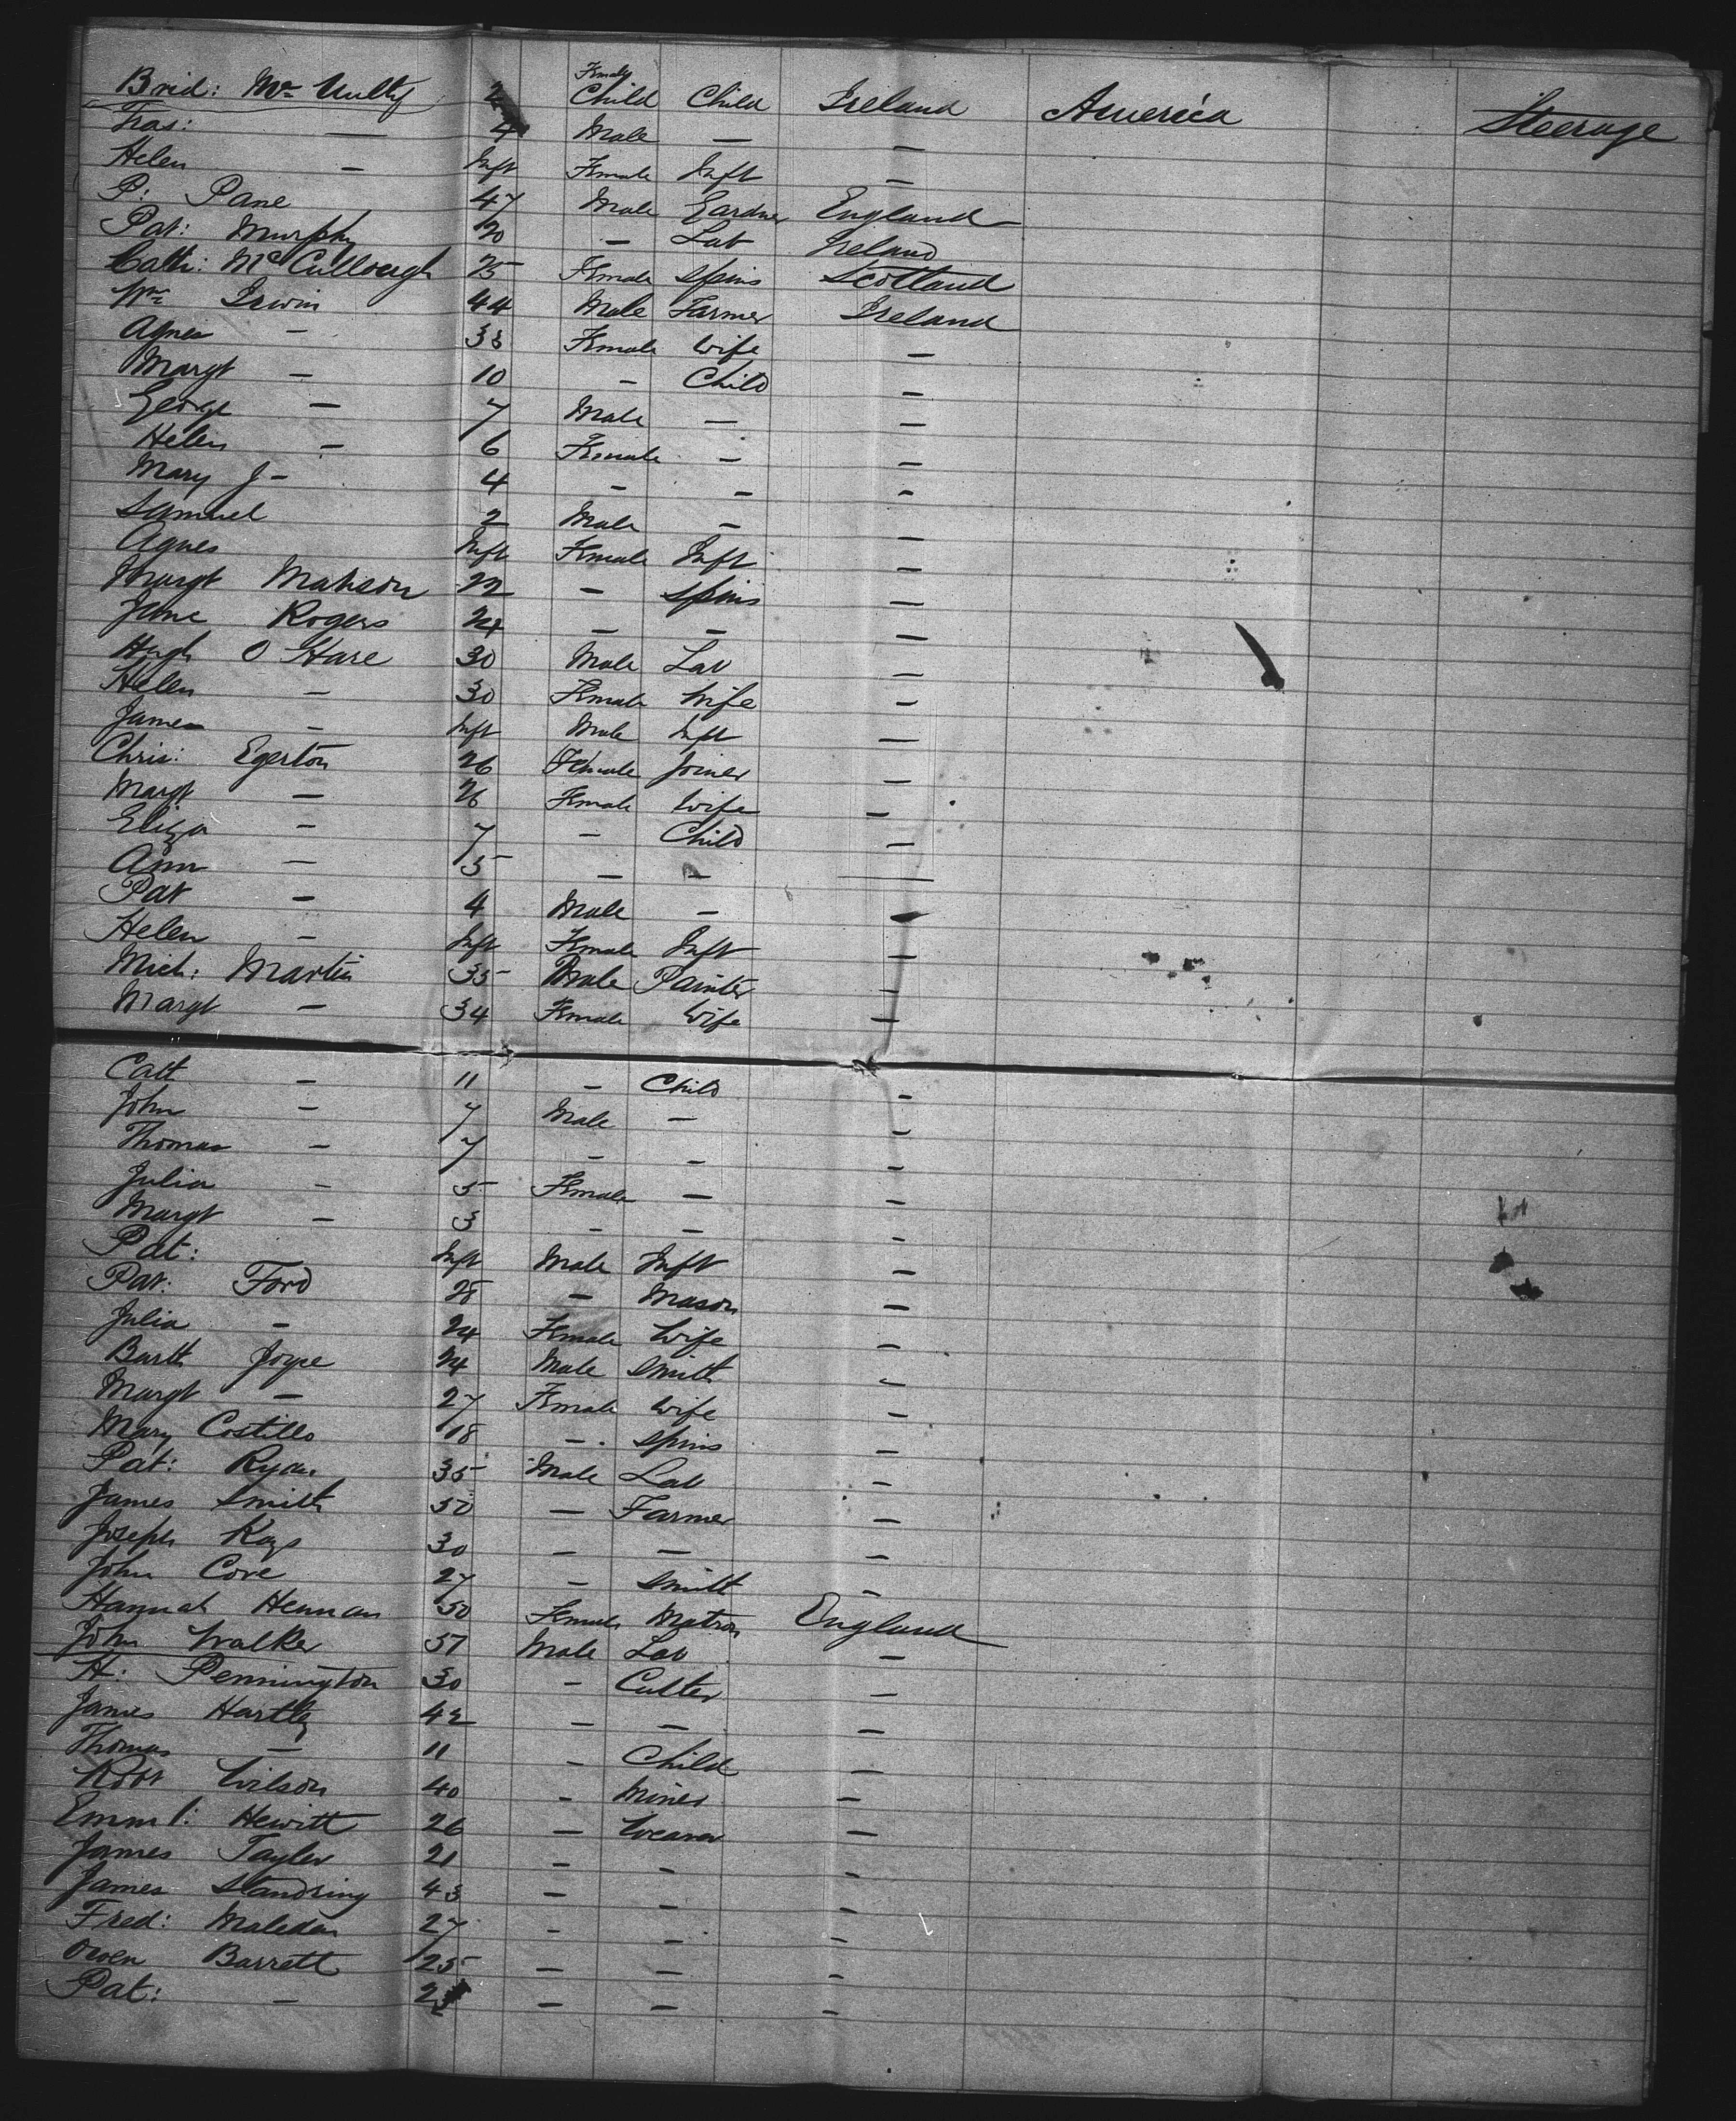 Brid: Mc Nulty 2 Female Child Child Ireland America Steerage
Fras: — 4 Male — —
Helen — Inft Female Inft —
P: Pane 47 Male Gardner England
Pat: Murphy 20 — Lab Ireland
Cath: McCullough 25 Female Spins Scotland
Wm Irwin 44 Male Farmer Ireland
Agnes — 33 Female Wife —
Margt — 10 — Child —
George — 7 Male — —
Helen — 6 Female — —
Mary J — 4 — — —
Samuel 2 Male — —
Agnes Inft Female Inft —
Margt 22 — Spins —
Jane Rogers 24 — — —
Hugh O Hare 30 Male Lab —
Helen — 30 Female Wife —
James — Inft Male Inft —
Chris: Egerton 26 Female Joiner —
Margt — 26 Female Wife —
Eliza — 7 — Child —
Ann — 5 — — —
Pat — 4 Male — —
Helen — Inft Female Inft —
Mich: Martin 35 Male Painter —
Margt — 34 Female Wife —
Cath — 11 — Child —
John — 7 Male — —
Thomas — 7 — — —
Julia — 5 Female — —
Margt — 3 — — —
Pat: Inft Male Inft —
Pat: Ford 28 — Mason —
Julia — 24 Female Wife —
Barth Joyce 24 Male Smith —
Margt — 27 Female Wife —
Mary Costillo 18 — Spins —
Pat: Ryan 35 Male Lab —
James Smith 50 — Farmer —
Joseph Kays 30 — — —
John Cove 27 — Smith —
Hannah Heenan 50 Female Matron England
John Walker 57 Male Lab —
H: Pennington 30 — Cutter —
James Hartley 42 — — —
Thomas — 11 — Child —
Robt Wilson 40 — Miner —
Emml: Hewitt 26 — Weaver —
James Tayler 21 — — —
James Standring 43 — — —
Fred: 27 — — —
Owen Barrett 25 — — —
Pat: — — — —